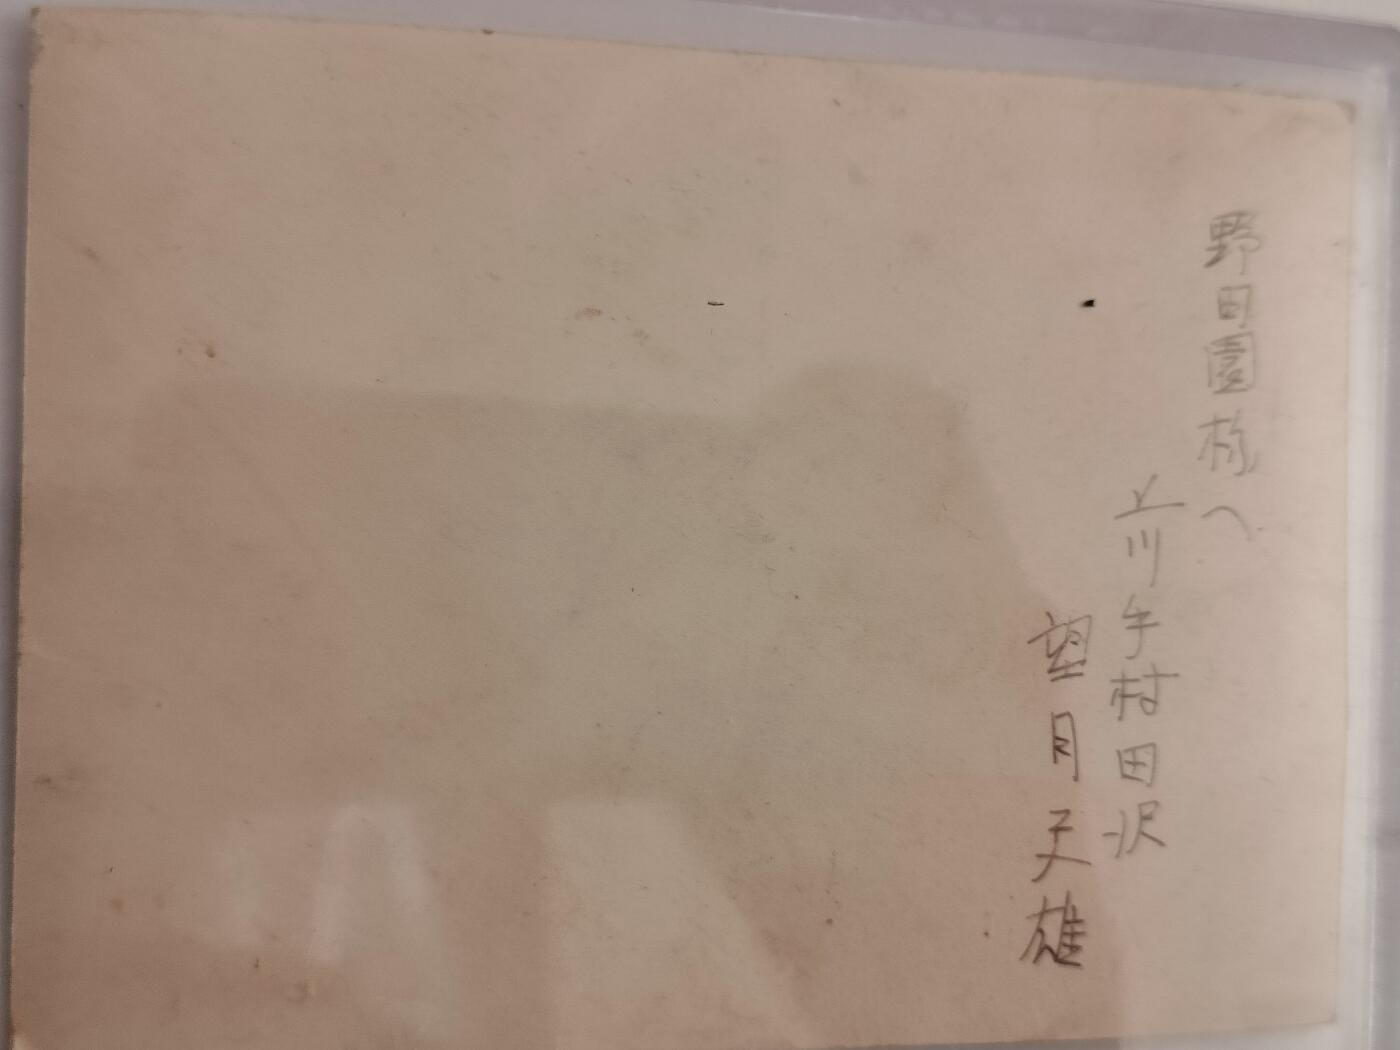 野田園様へ
上川手村田沢
望月雄